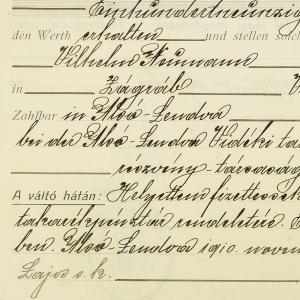 Einhundertneunzig
den Werth erhalten und stellen solch
Vilhelm Neumann
in Zágráb V
Zahlbar in Alsó-Lendva
bei der Alsó-Lendva Vidéki ta
részvény-társaság
A váltó hátán: Helyettem fizettessék
takarékpénztár rendeletére.
ben. Alsó Lendva 1910. novem
Lajos s.k.